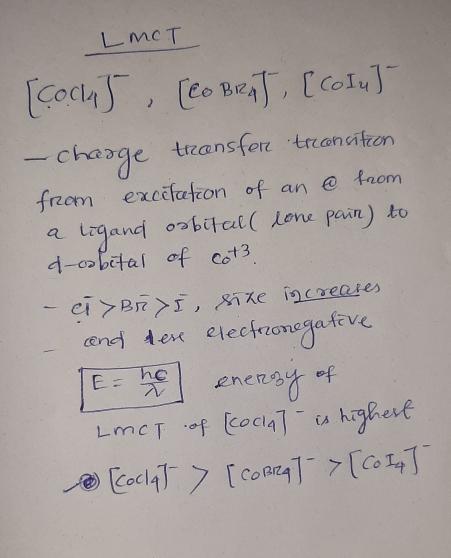 LMCT
[CoCl4]⁻, [CoBr4]⁻, [CoI4]⁻
– charge transfer transition
from excitation of an e from
a ligand orbital (lone pair) to
d-orbital of Co+3.
– Cl⁻ > Br⁻ > I⁻, size increases
– and less electronegative
E = hc/λ energy of
LMCT of [CoCl4]⁻ is highest
[CoCl4]⁻ > [CoBr4]⁻ > [CoI4]⁻